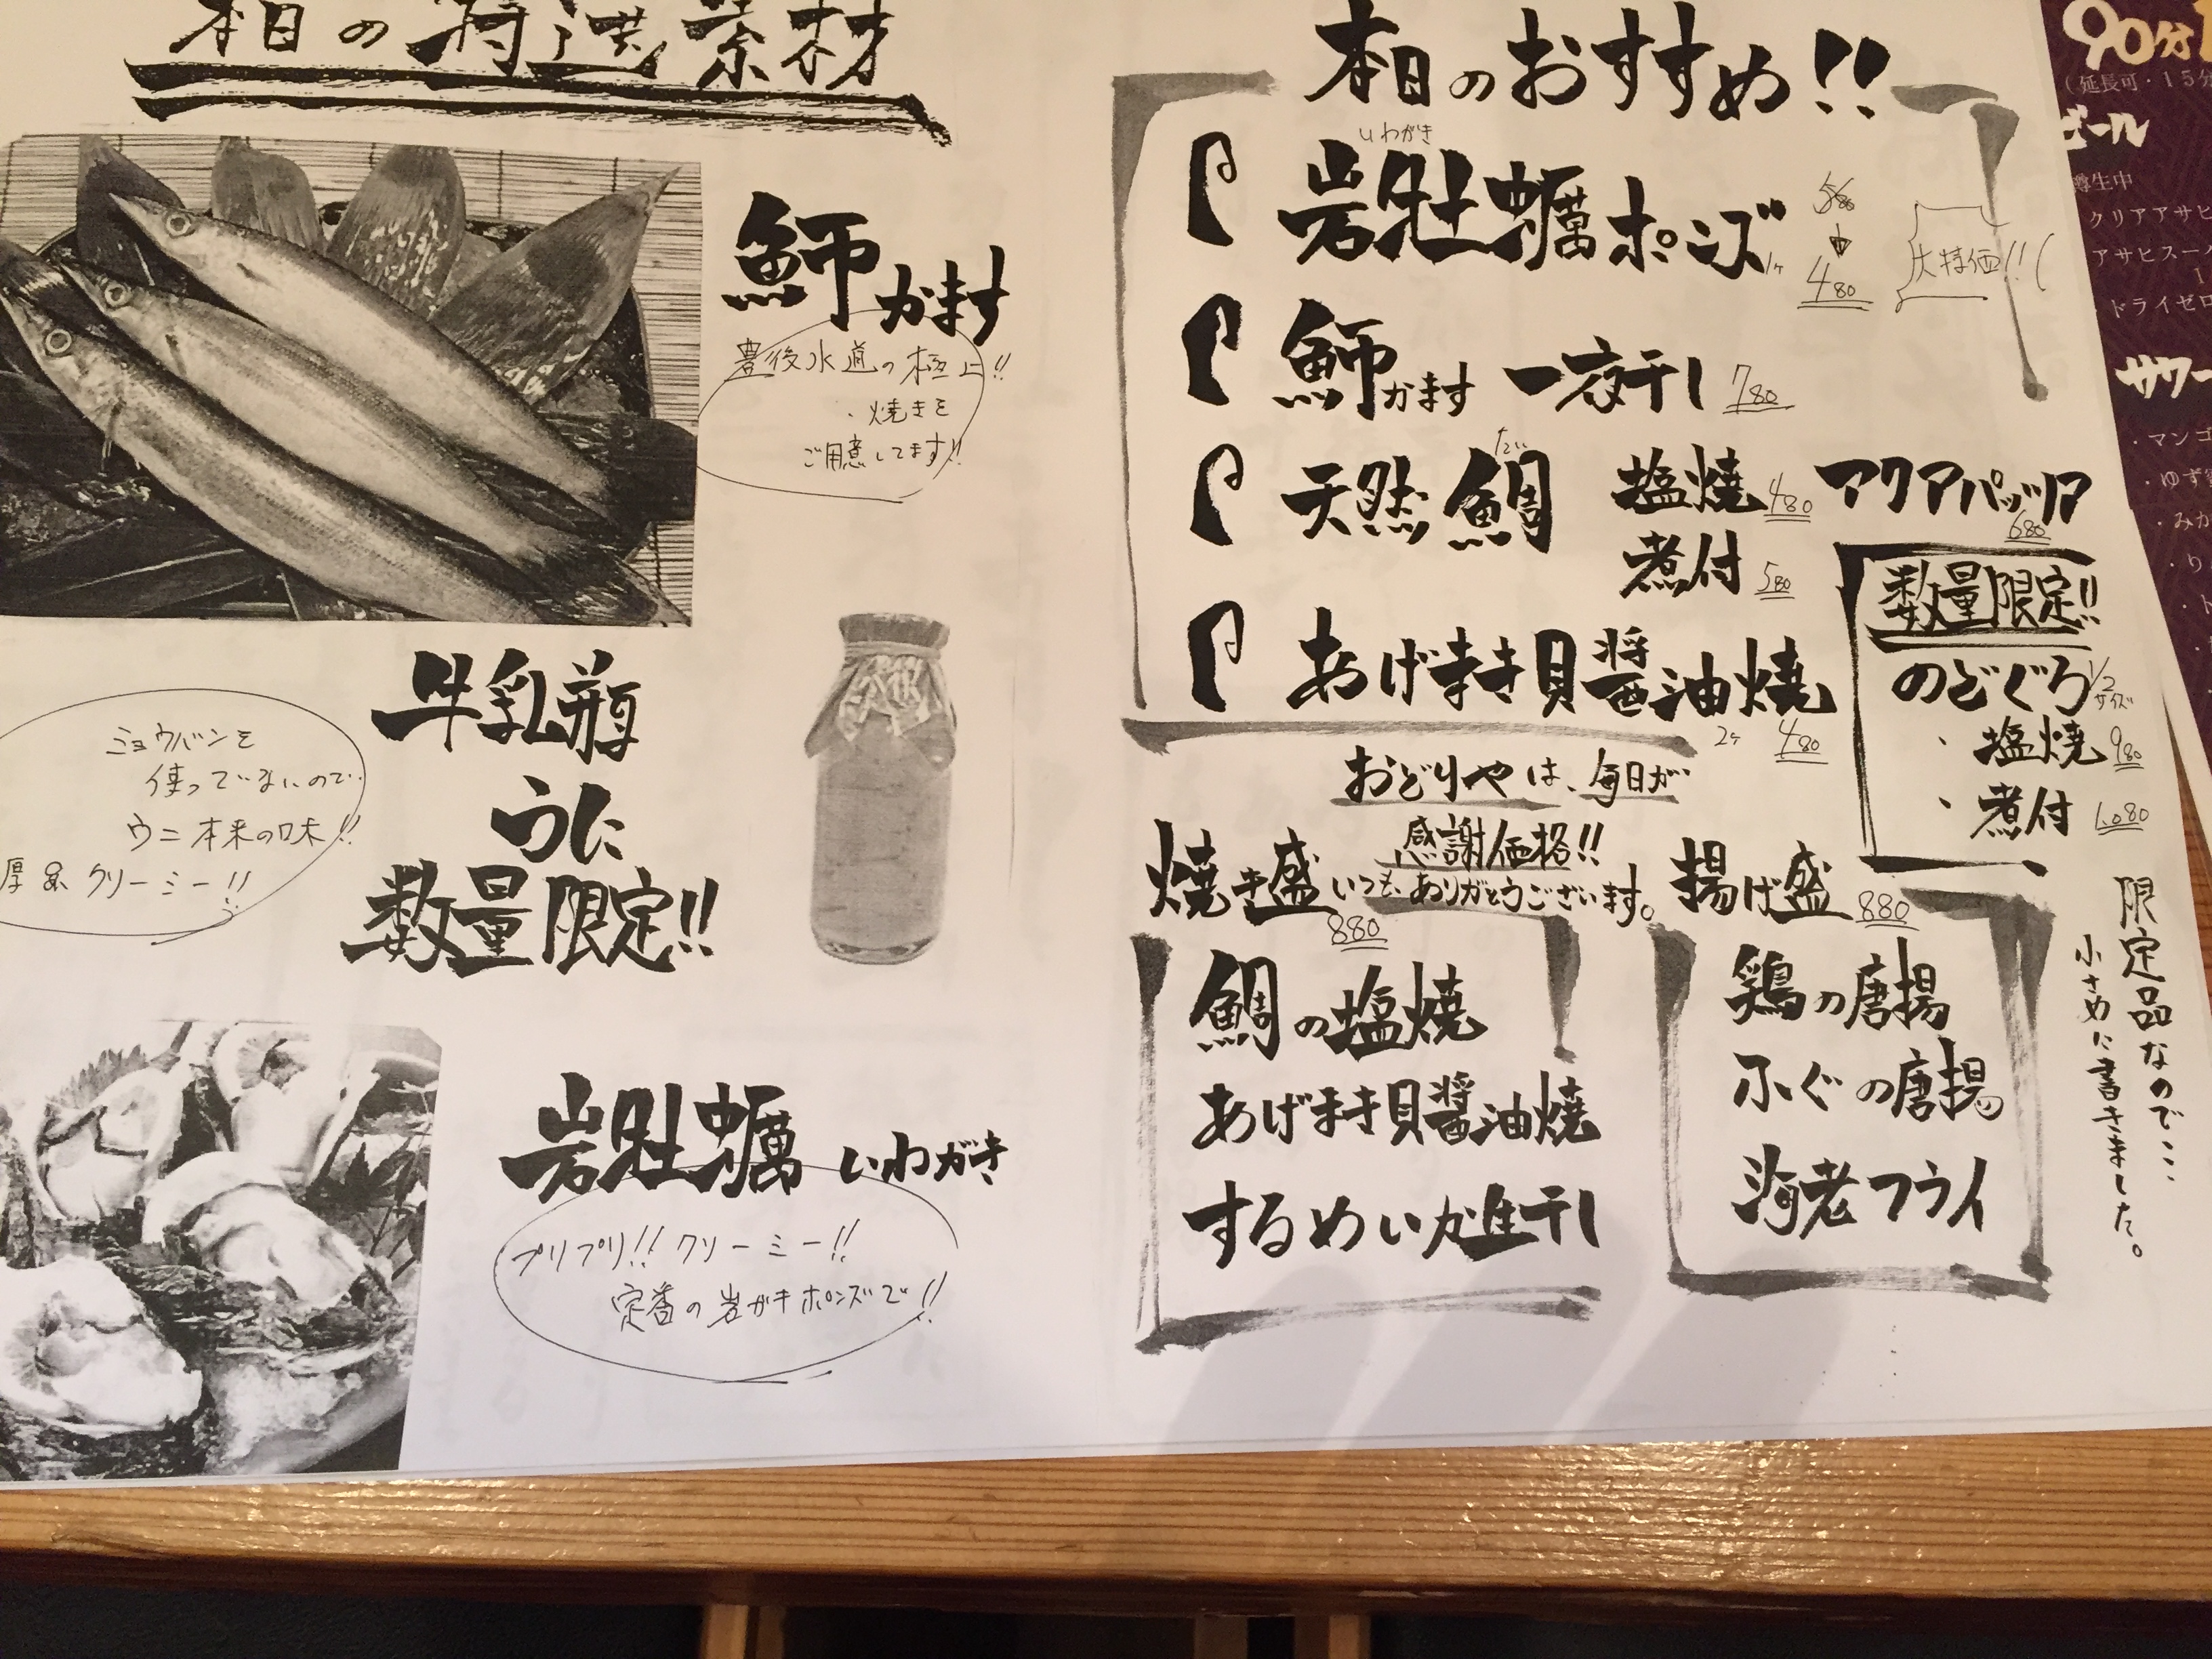 本日の特選素材
魳かます
豊後水道の極上!!
焼きを
ご用意してます!!
牛乳瓶
うに
数量限定!!
ミョウバンを
使っていないので
ウニ本来の味!!
クリーミー!!
岩牡蠣 いわがき
プリプリ!! クリーミー!!
定番の岩がきポンズで!!
本日のおすすめ!!
いわがき
岩牡蠣ポンズ 1ヶ 580 480
大特価!!
魳かます 一夜干し 780
天然鯛 たい 塩焼 480 アクアパッツア 680
煮付 580
あげまき貝醤油焼
2ヶ 480
数量限定!!
のどぐろ 1/2サイズ
・塩焼 980
・煮付 1,080
おどりやは、毎日が
感謝価格!!
いつも、ありがとうございます。
焼き盛 880
鯛の塩焼
あげまき貝醤油焼
するめいか生干し
揚げ盛 880
鶏の唐揚
ふぐの唐揚
海老フライ
限定品なので…
小さめに書きました。
90分
(延長可・15分
ビール
樽生中
クリアアサヒ
アサヒスーパ
ドライゼロ
サワー
・マンゴ
・ゆず
・みか
・り